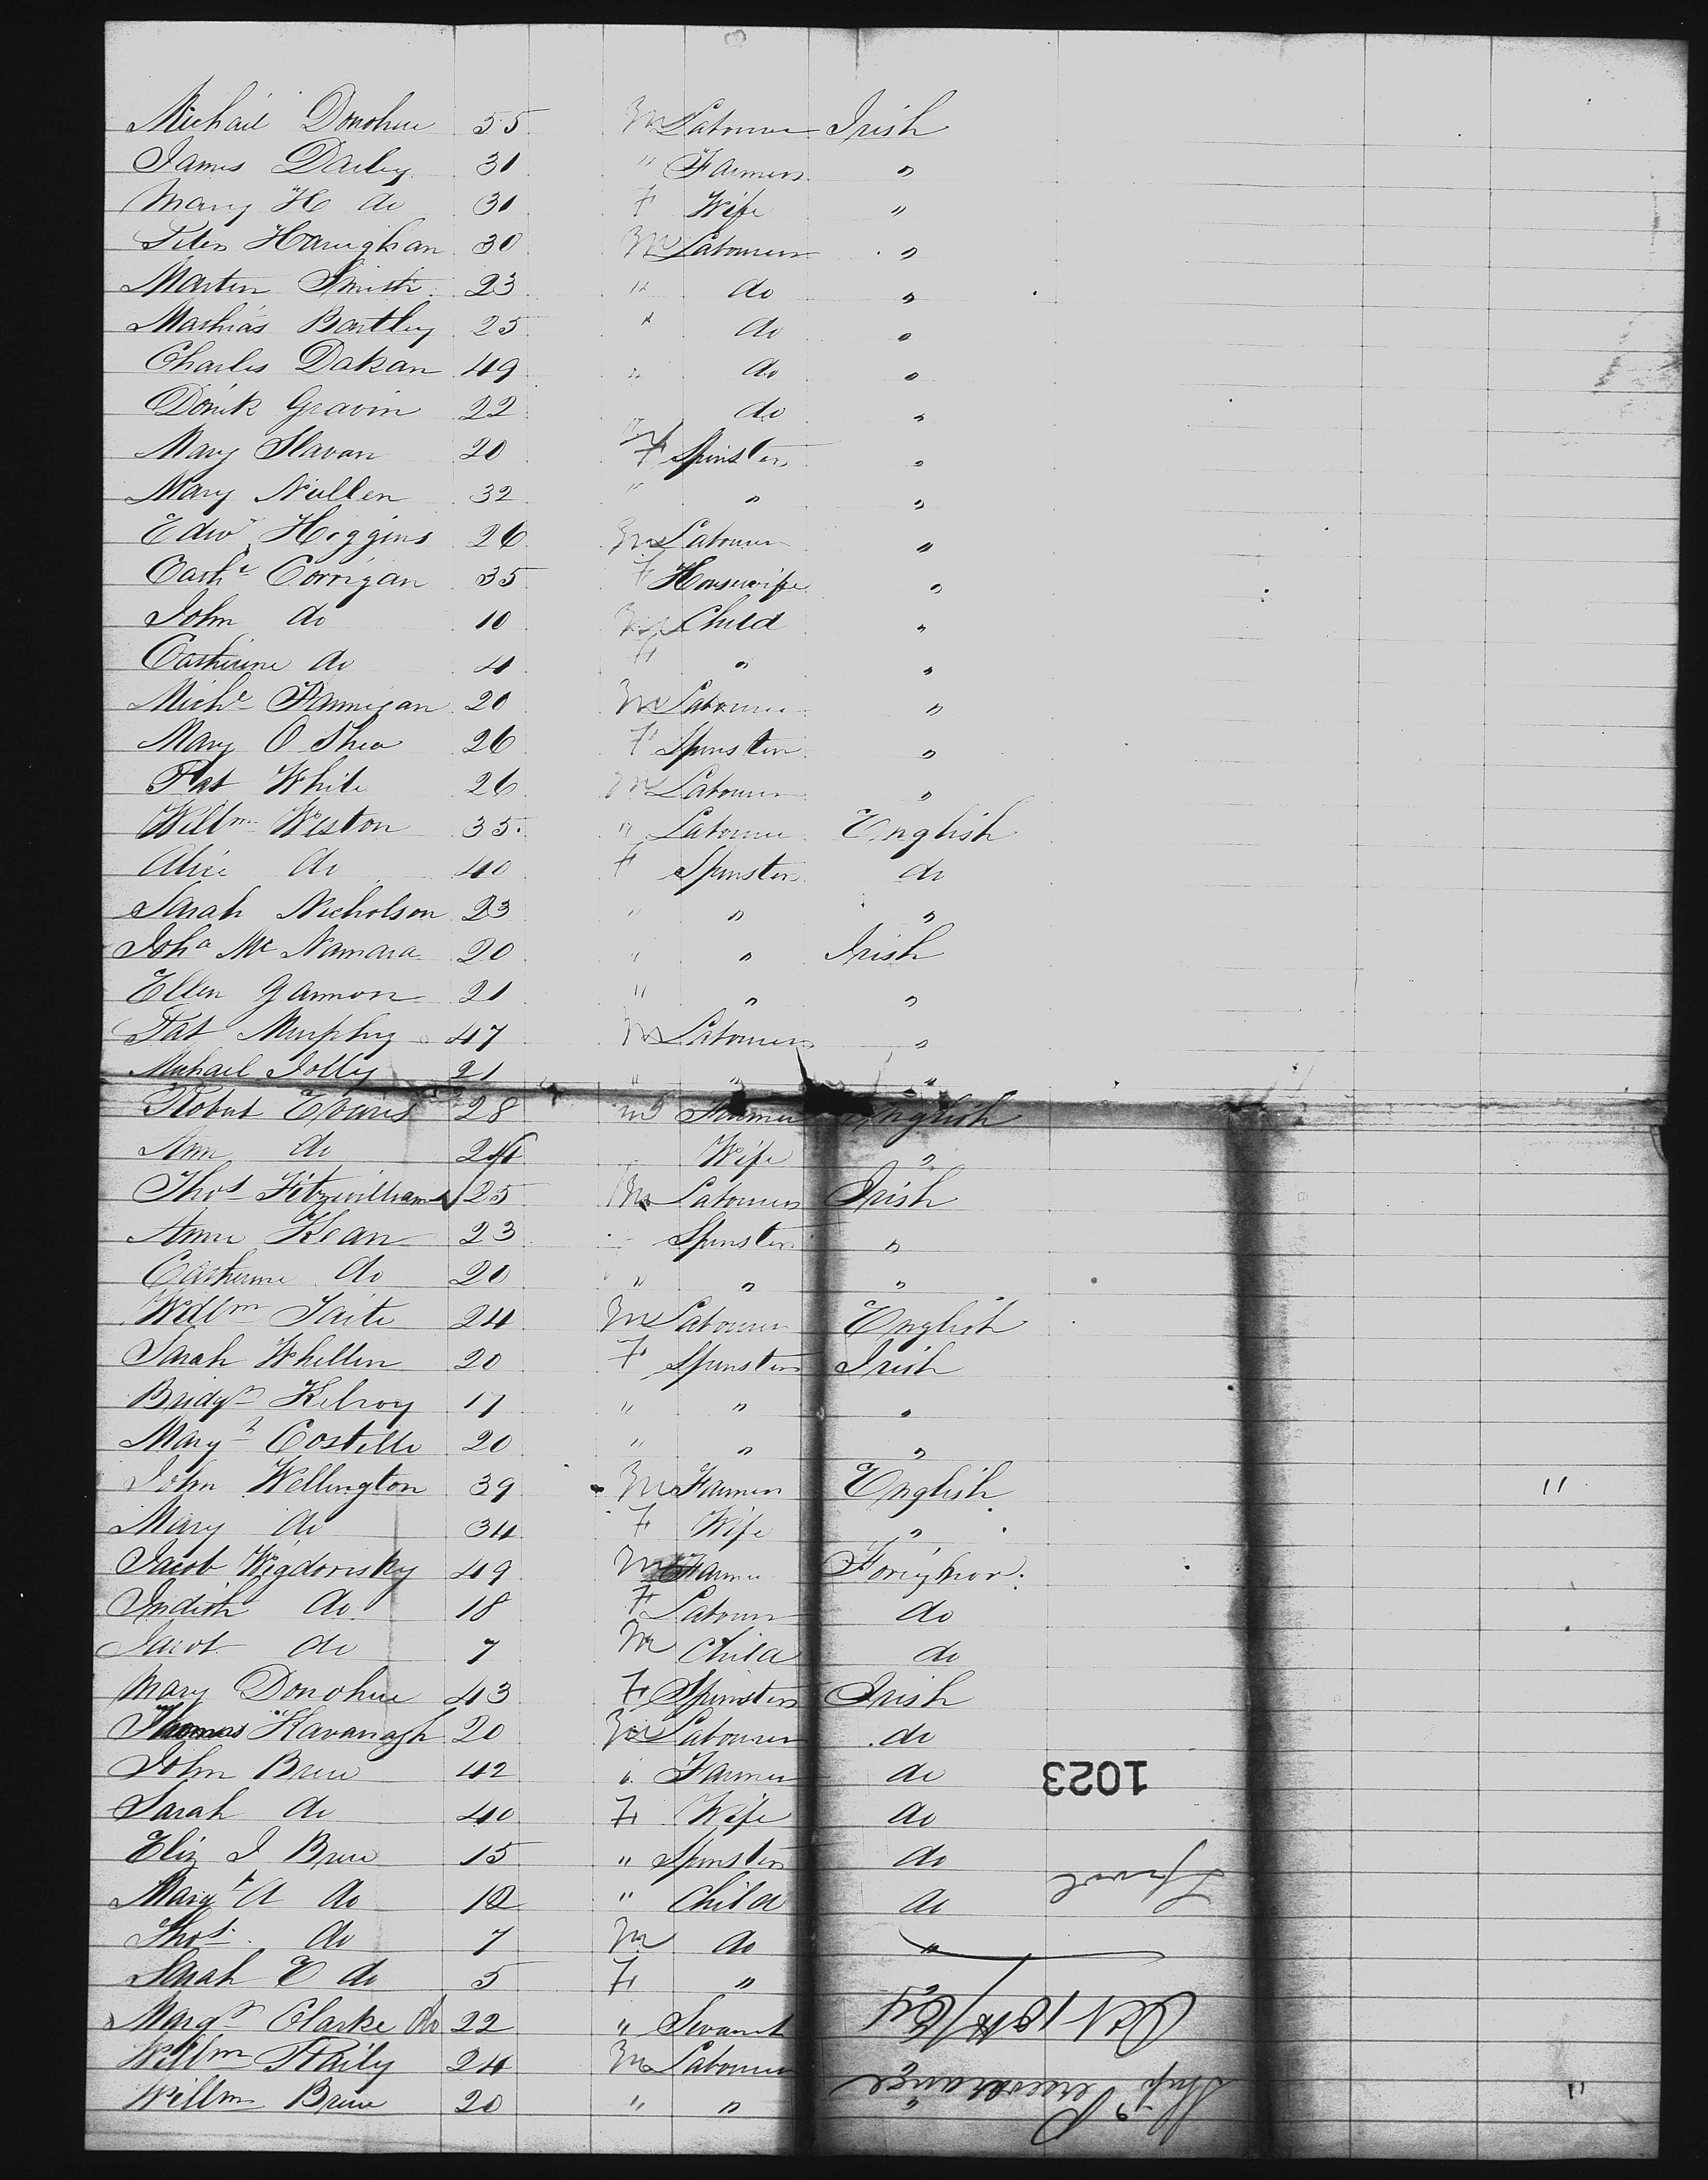 Michael Donohue 55 M Labourer Irish
James Dailey 31 " Farmer "
Mary H do 31 F Wife "
Peter Haughan 30 M Labourer "
Martin Smith 23 " do "
Mathias Bartley 25 " do "
Charles Dakan 49 " do "
Domk Gravin 22 do "
Mary Slavan 20 F Spinster "
Mary Nullen 32 " " "
Edwd Higgins 26 M Labourer "
Cathe Corrigan 35 F Housewife "
John do 10 M Child "
Catherine do 4 F " "
Michl Flannigan 20 M Labourer "
Mary O Shea 26 F Spinster "
Pat White 26 M Labourer "
Willm Weston 35 " Labourer English
Alice do 40 F Spinster do
Sarah Nicholson 23 " " "
Joha Mc Namara 20 " " Irish
Ellen Gannon 21 " " "
Pat Murphy 47 M Labourer "
Michael Jolly 21 " " "
Robert Evans 28 M Farmer English
Ann do 24 Wife "
Thos Fitzwilliams 25 M Labourer Irish
Anne Kean 23 Spinster "
Catherine do 20 " " "
Willm Taite 24 M Labourer English
Sarah Whellen 20 F Spinster Irish
Bridgt Kilroy 17 " " "
Margt Costello 20 " " "
John Wellington 39 M Farmer English "
Mary do 34 F Wife "
Jacob Wigdorisky 49 M Farmer Foreighnor
Indith do 18 F Labourer do
Jacob do 7 M Child do
Mary Donohue 43 F Spinster Irish
Thomas Kavanagh 20 M Labourer do
John Brew 42 " Farmer do
1023
Sarah do 40 F Wife do
Eliz J Brew 15 " Spinster do
Lpool
Margt A do 12 " Child do
Thos do 7 M do "
Sarah E do 5 F " "
Oct 18th/64
Margt Clarke do 22 " Servant
Willm Haily 24 M Labourer
Ship Perseverance
Willm Brew 20 " " "